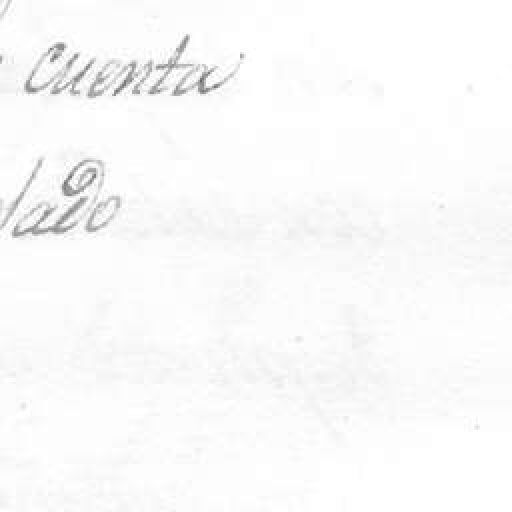 cuenta
lado